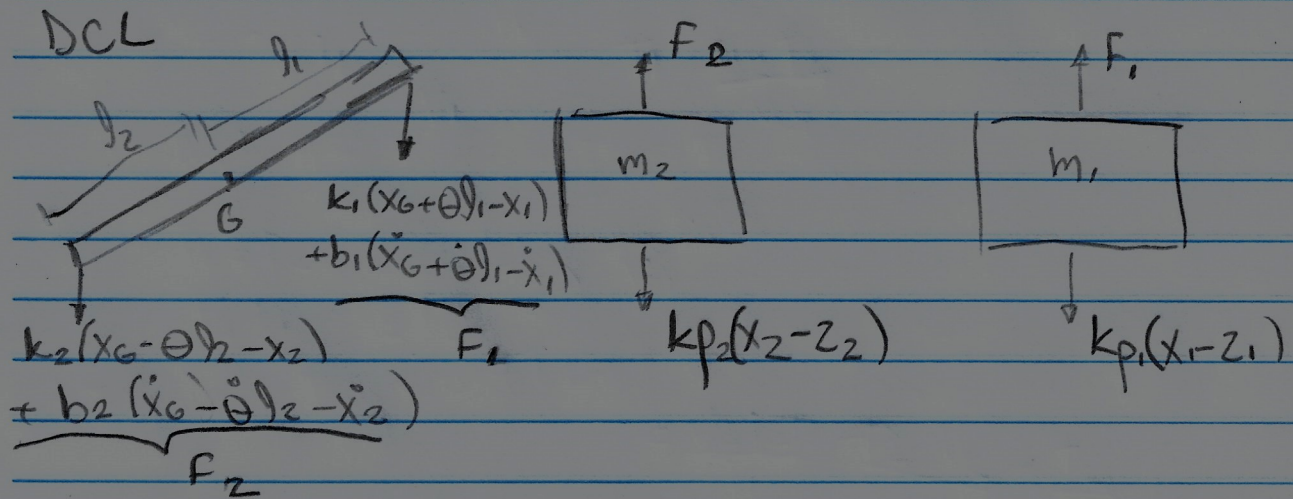 DCL
l₁
l₂
G
k₁(x_G+θl₁-x₁)
+b₁(ẋ_G+θ̇l₁-ẋ₁)
F₁
k₂(x_G-θl₂-x₂)
+ b₂(ẋ_G-θ̇l₂-ẋ₂)
F₂
F₂
m₂
kp₂(x₂-z₂)
F₁
m₁
kp₁(x₁-z₁)